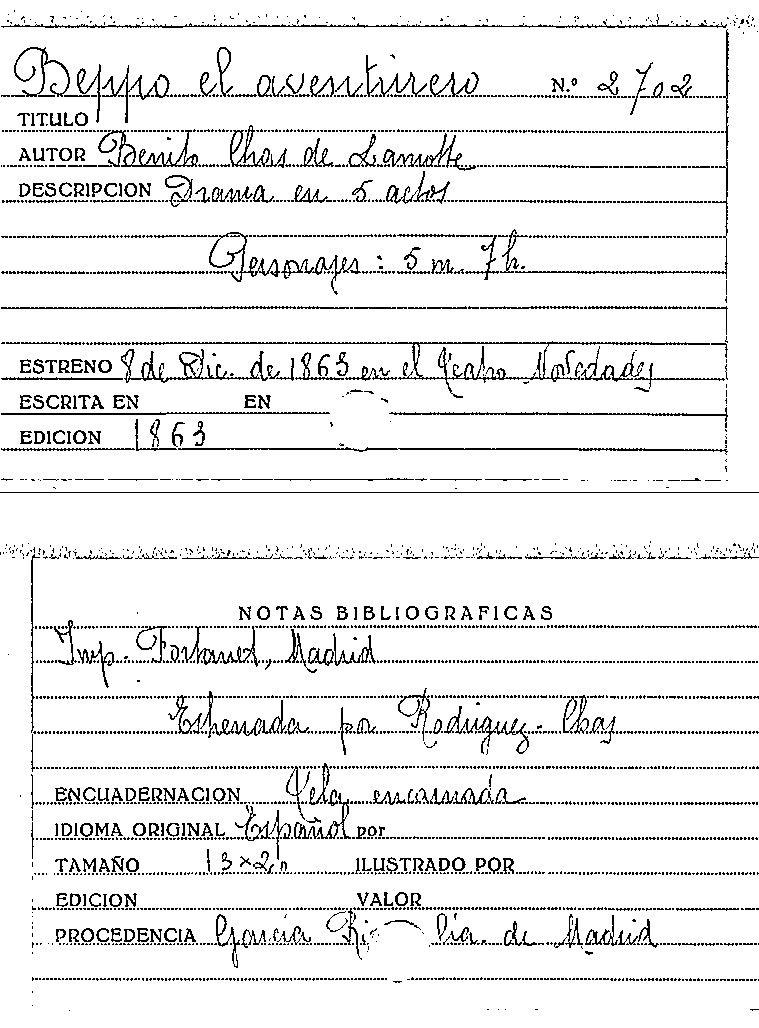 Beppo el aventurero N.º 2702
TITULO
AUTOR Benito Chas de Lamotte
DESCRIPCION Drama en 5 actos
Personajes : 5 m. 7 h.
ESTRENO 8 de Dic. de 1863 en el Teatro Novedades
ESCRITA EN EN
EDICION 1863
NOTAS BIBLIOGRAFICAS
Imp. Fortanet, Madrid
Estrenada por Rodriguez - Chas
ENCUADERNACION Tela encarnada
IDIOMA ORIGINAL Español por
TAMAÑO 13 x 20 ILUSTRADO POR
EDICION VALOR
PROCEDENCIA García Cía. de Madrid